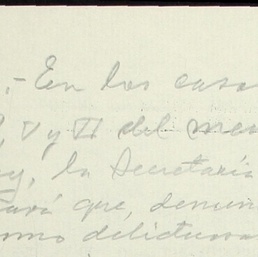 .- En los caso
, V y VI del men
y, la Secretaría
ará que, denun
omo delictuosa